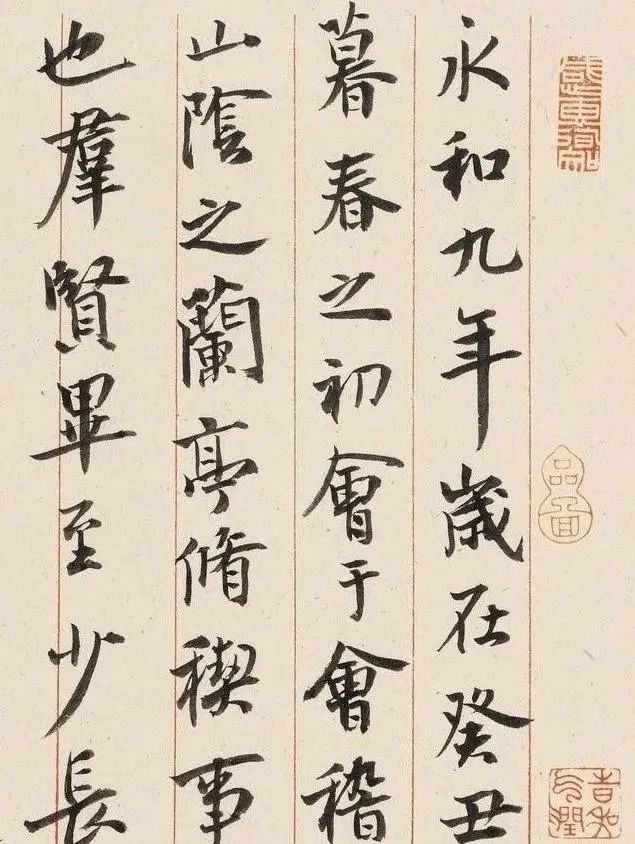 永和九年歲在癸丑
暮春之初會于會稽
山陰之蘭亭脩稧事
也羣賢畢至少長